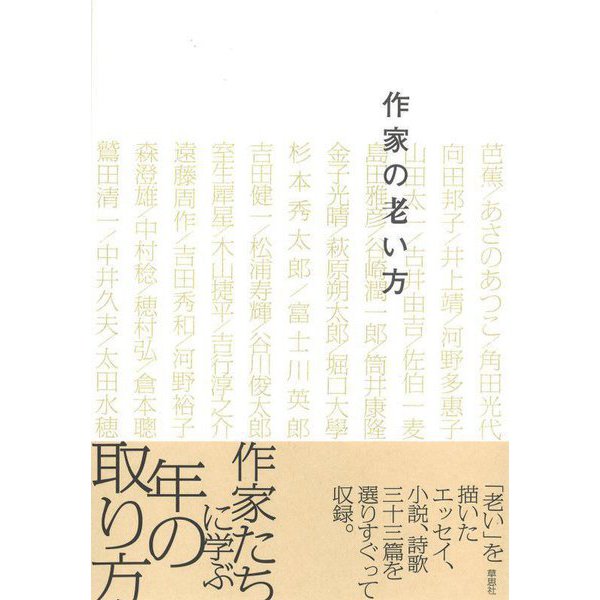 作家の老い方
芭蕉/あさのあつこ/角田光代
向田邦子/井上靖/河野多惠子
山田太一/古井由吉/佐伯一麦
島田雅彦/谷崎潤一郎/筒井康隆
金子光晴/萩原朔太郎/堀口大學
杉本秀太郎/富士川英郎
吉田健一/松浦寿輝/谷川俊太郎
室生犀星/木山捷平/吉行淳之介
遠藤周作/吉田秀和/河野裕子
森澄雄/中村稔/穂村弘/倉本聰
鷲田清一/中井久夫/太田水穂
「老い」を
描いた
エッセイ、
小説、詩歌
三十三篇を
選りすぐって
収録。
草思社
作家たち
に学ぶ
年の
取り方